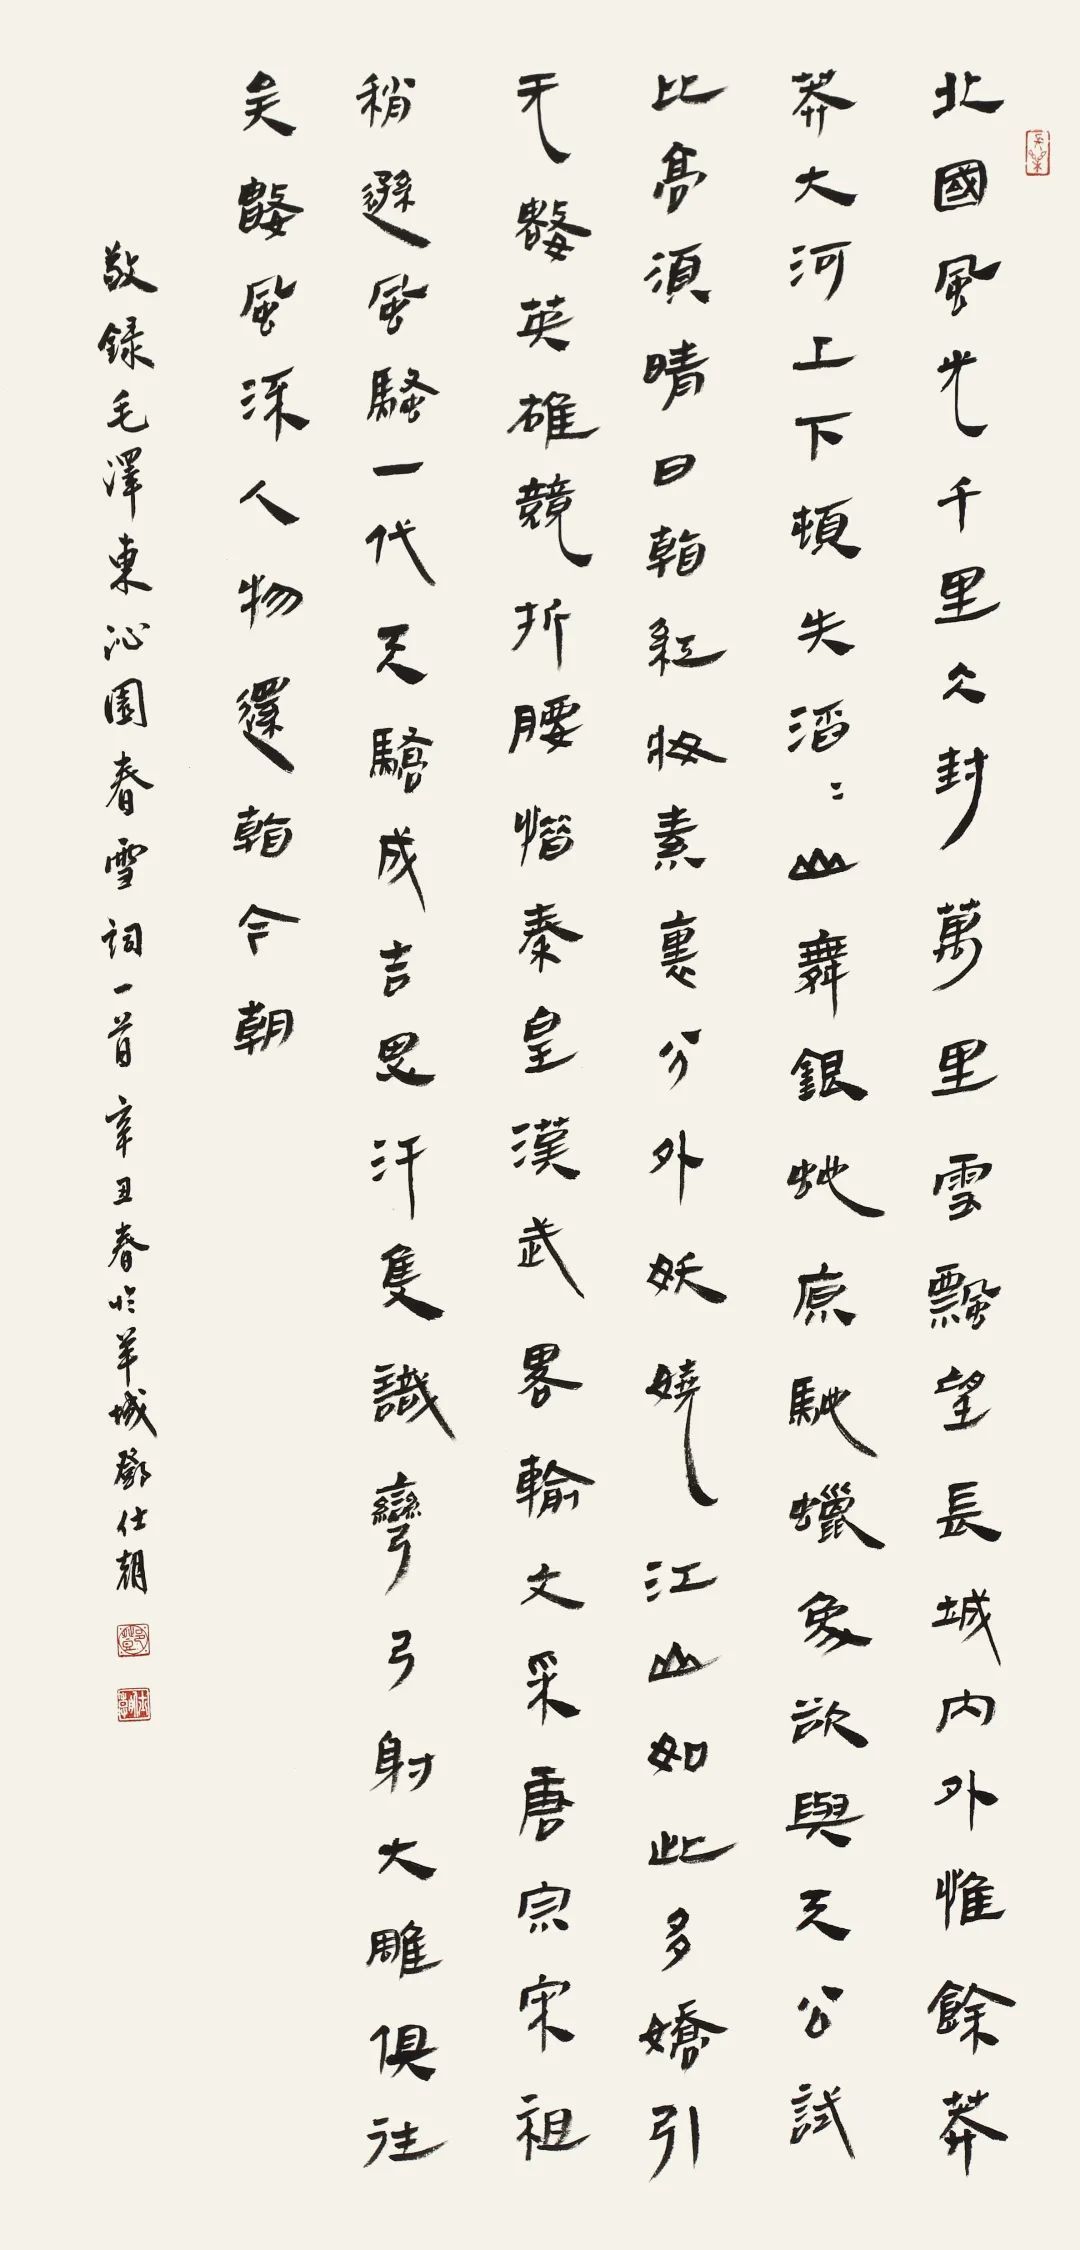 北國風光千里仌封萬里雪飄望長城內外惟餘莽
莽大河上下頓失滔〻山舞銀蛇原馳蠟象欲與天公試
比高須晴日看紅妝素裹分外妖嬈江山如此多嬌引
无數英雄競折腰惜秦皇漢武畧輸文采唐宗宋祖
稍遜風騷一代天驕成吉思汗隻識彎弓射大雕俱往
矣數風流人物還看今朝
敬錄毛澤東沁園春雪詞一首辛丑春於羊城鄧仕朝